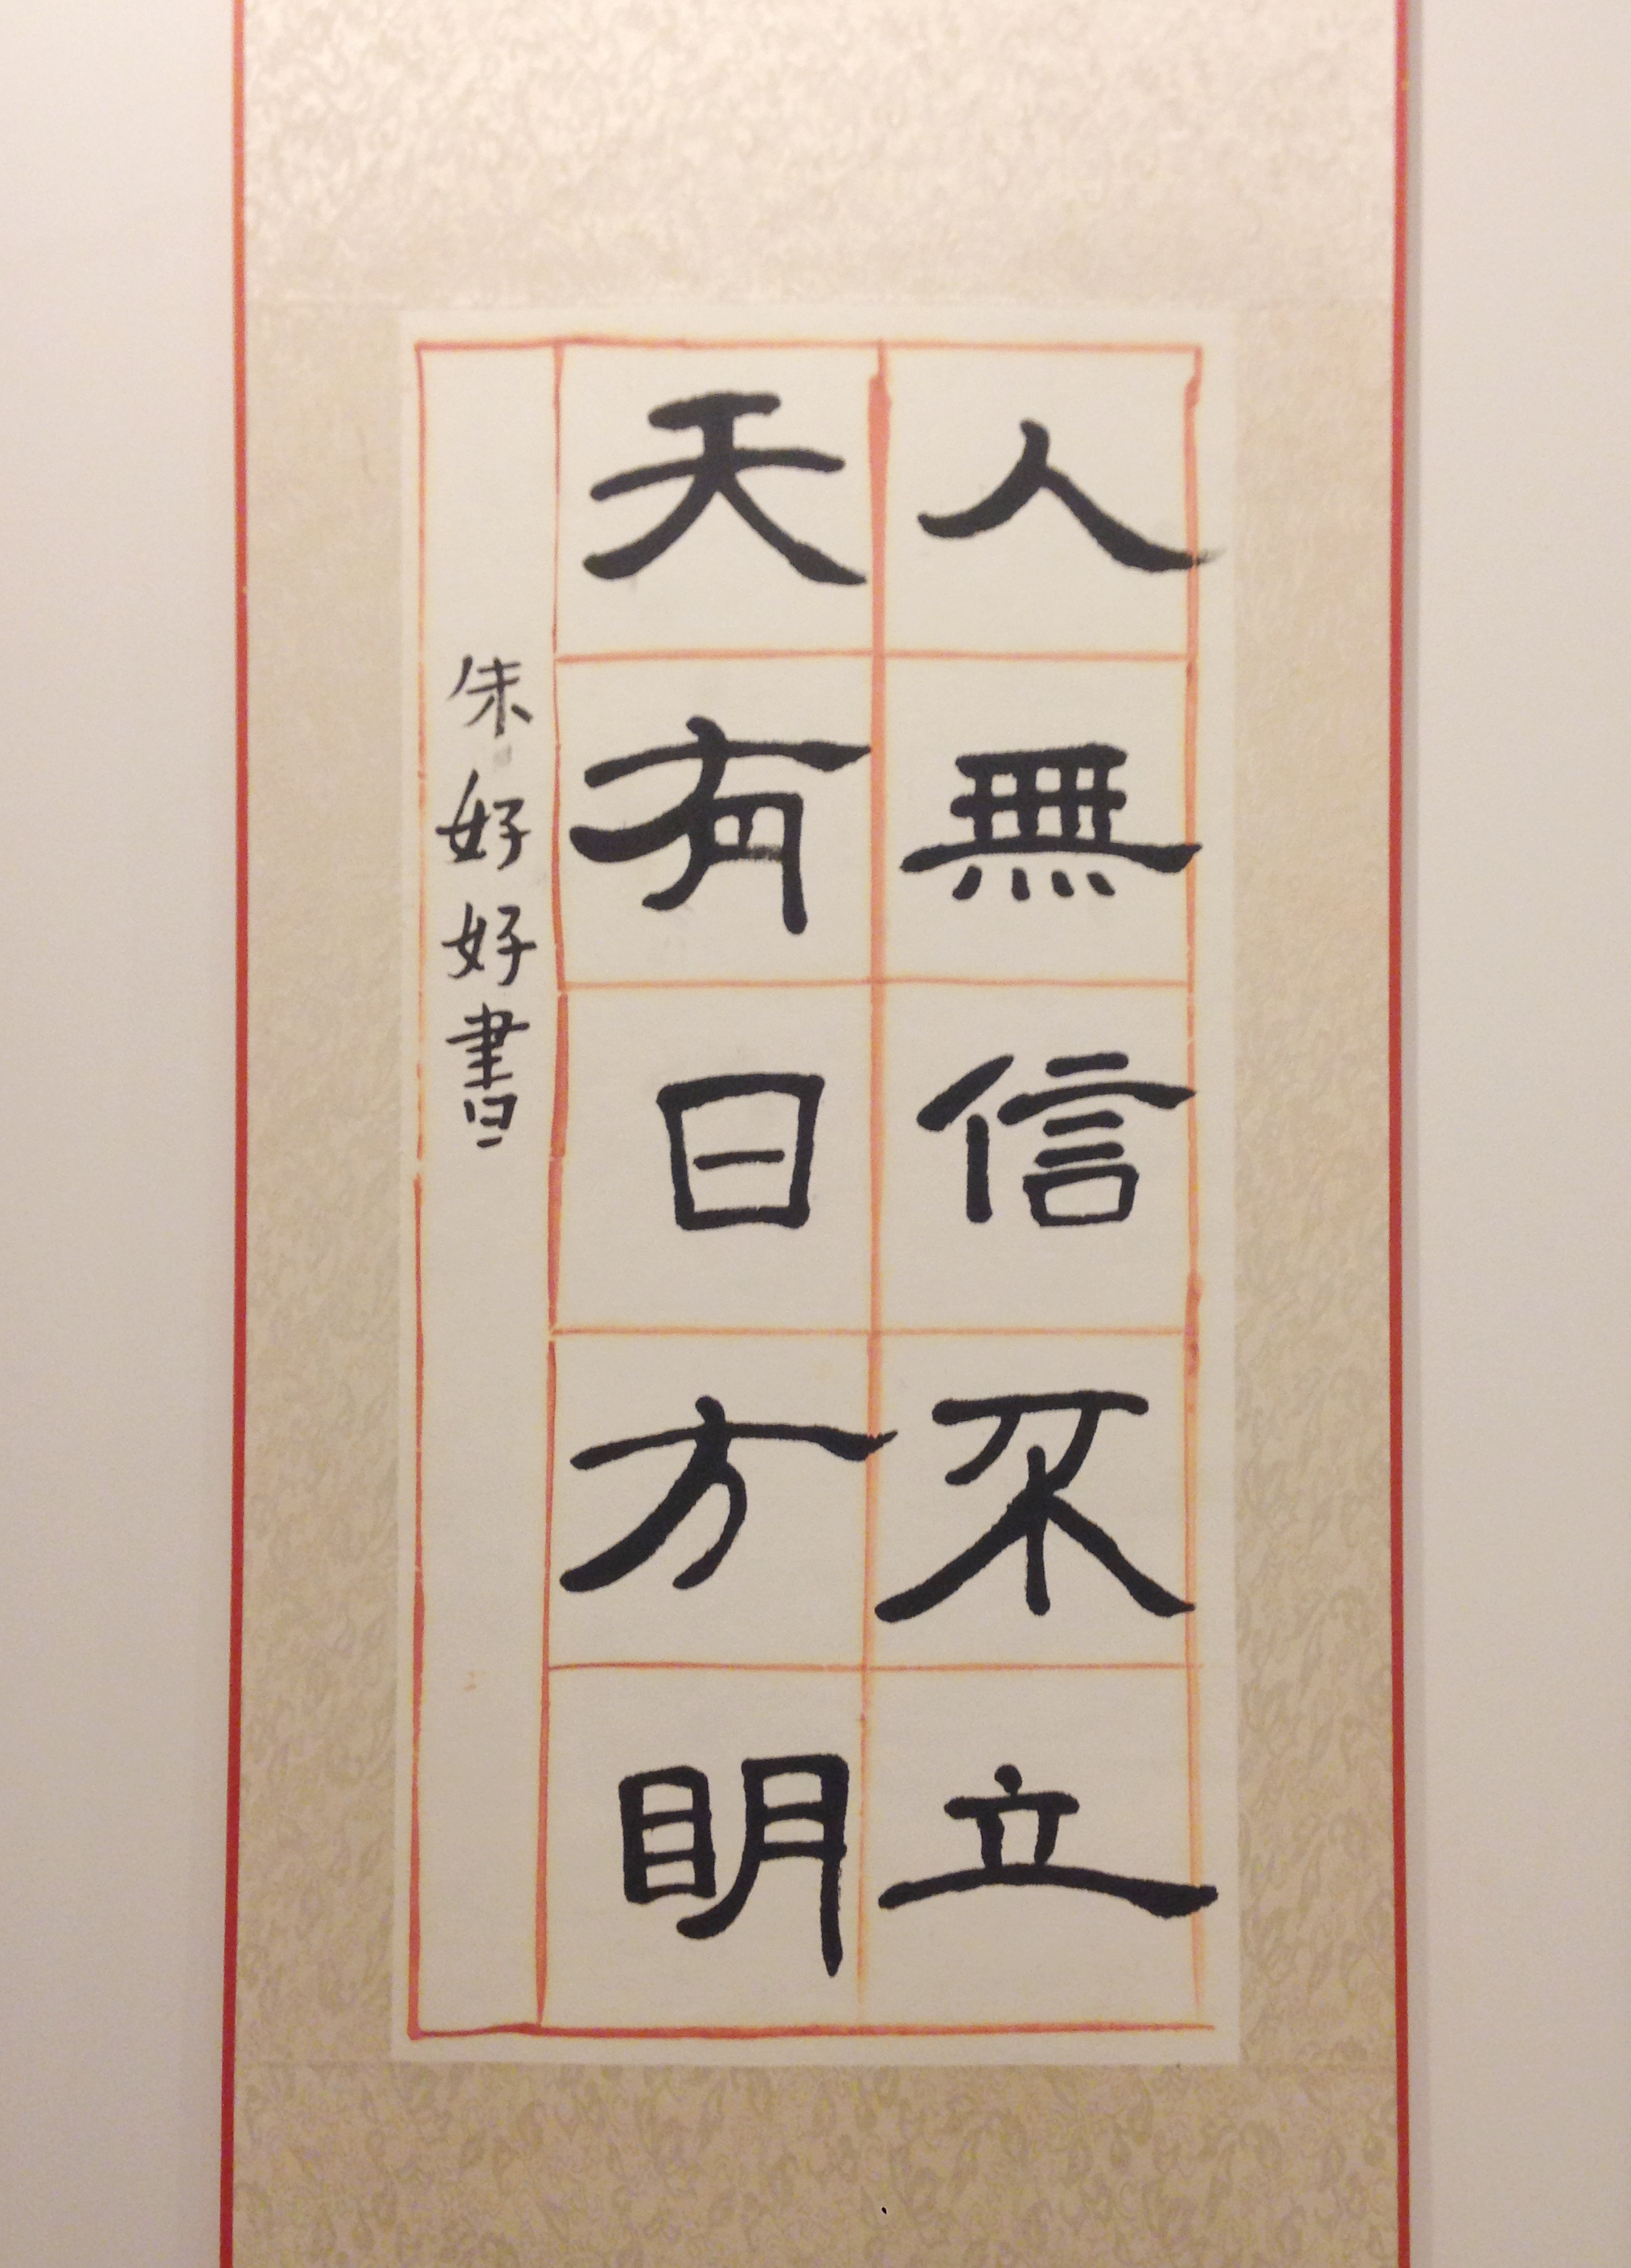 人無信不立
天有日方明
朱好好書